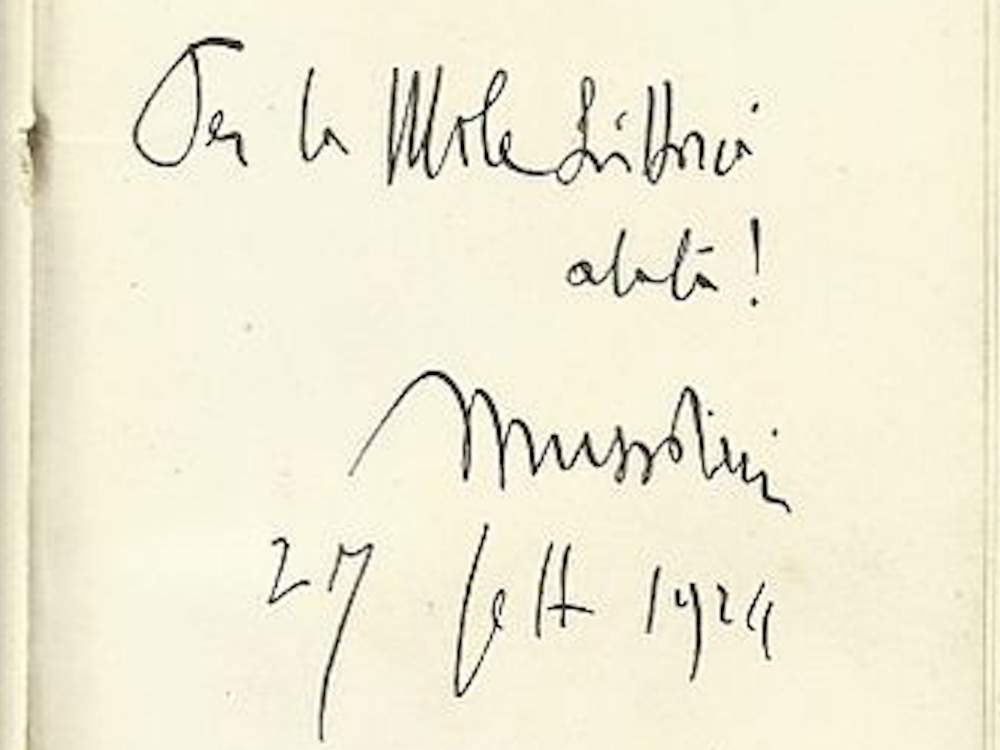 Per la Mole Littoria
alalà!
Mussolini
27 sett 1924